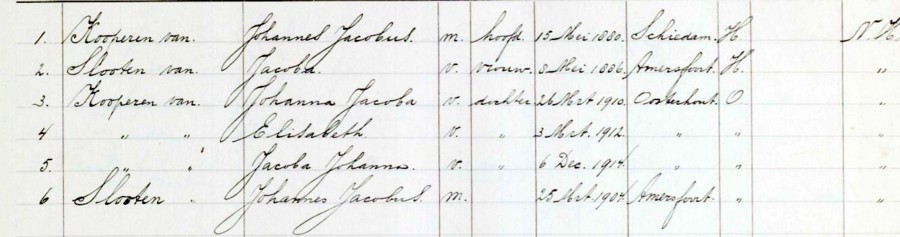 1. Kooperen van. Johannes Jacobus. m. hoofd. 15 Mei 1880. Schiedam. H. N. H.
2. Slooten van. Jacoba. v. vrouw. 8 Mei 1886. Amersfoort. H. "
3. Kooperen van. Johanna Jacoba v. dochter 26 Mrt 1910. Oosterhout. O. "
4 " " Elisabeth. v. " 3 Mrt. 1912. " " "
5. " " Jacoba Johanna. v. " 6 Dec. 1914 " " "
6 Slooten " Johannes Jacobus. m. 25 Mrt 1904 Amersfoort. " "